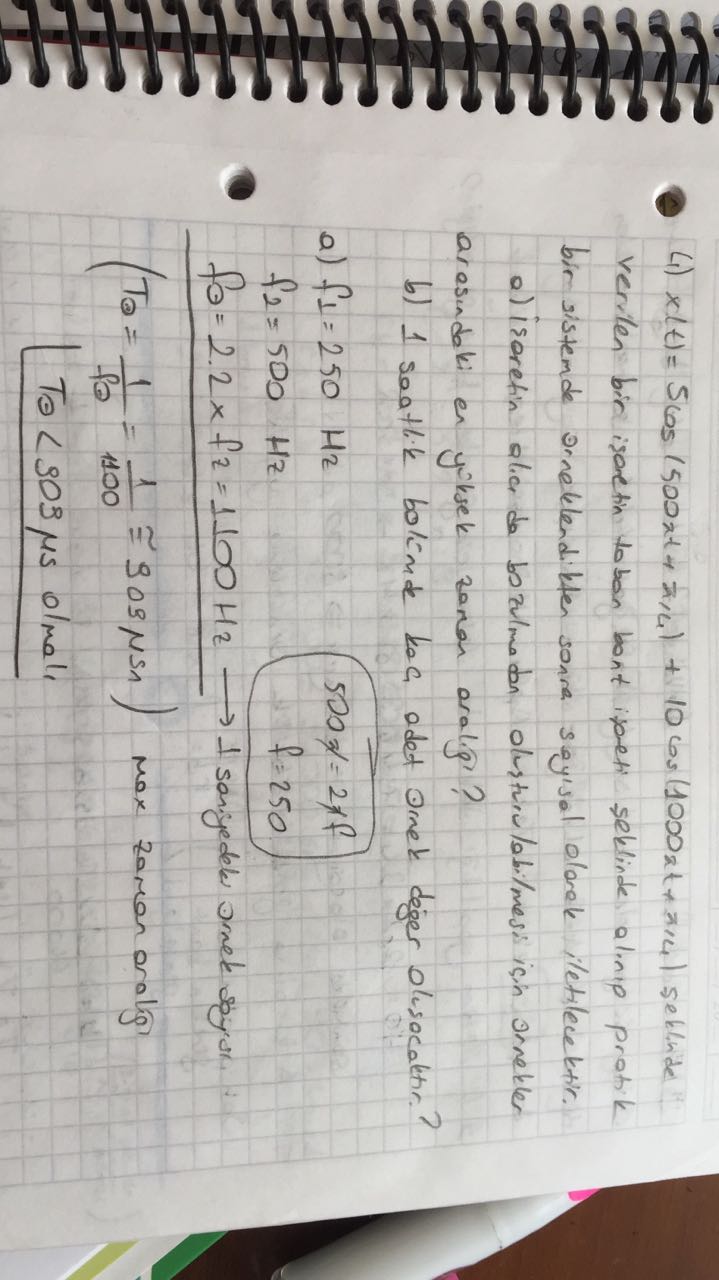 4) x(t) = 5cos(500πt + π/4) + 10cos(1000πt + π/4) şeklinde
verilen bir işaretin taban bant işareti şeklinde alınıp pratik
bir sistemde örneklendikten sonra sayısal olarak iletilecektir.
a) İşaretin alıcıda bozulmadan oluşturulabilmesi için örnekler
arasındaki en yüksek zaman aralığı?
b) 1 saatlik bölümde kaç adet örnek değer oluşacaktır?
a) f1 = 250 Hz
500π = 2πf
f2 = 500 Hz
f = 250
fö = 2.2 x f2 = 1100 Hz → 1 saniyedeki örnek sayısı
(Tö = 1/fö = 1/1100 ≅ 909 μsn) max zaman aralığı
Tö < 909 μs olmalı